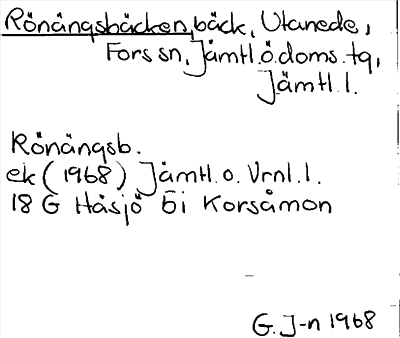 Rönängsbäcken, bäck, Utanede,
Fors sn, Jämtl. ö. doms. tq,
Jämtl. l.
Rönängsb.
ek (1968) Jämtl. o. Vrnl. l.
18 G Håsjö 5i Korsåmon
G. J-n 1968